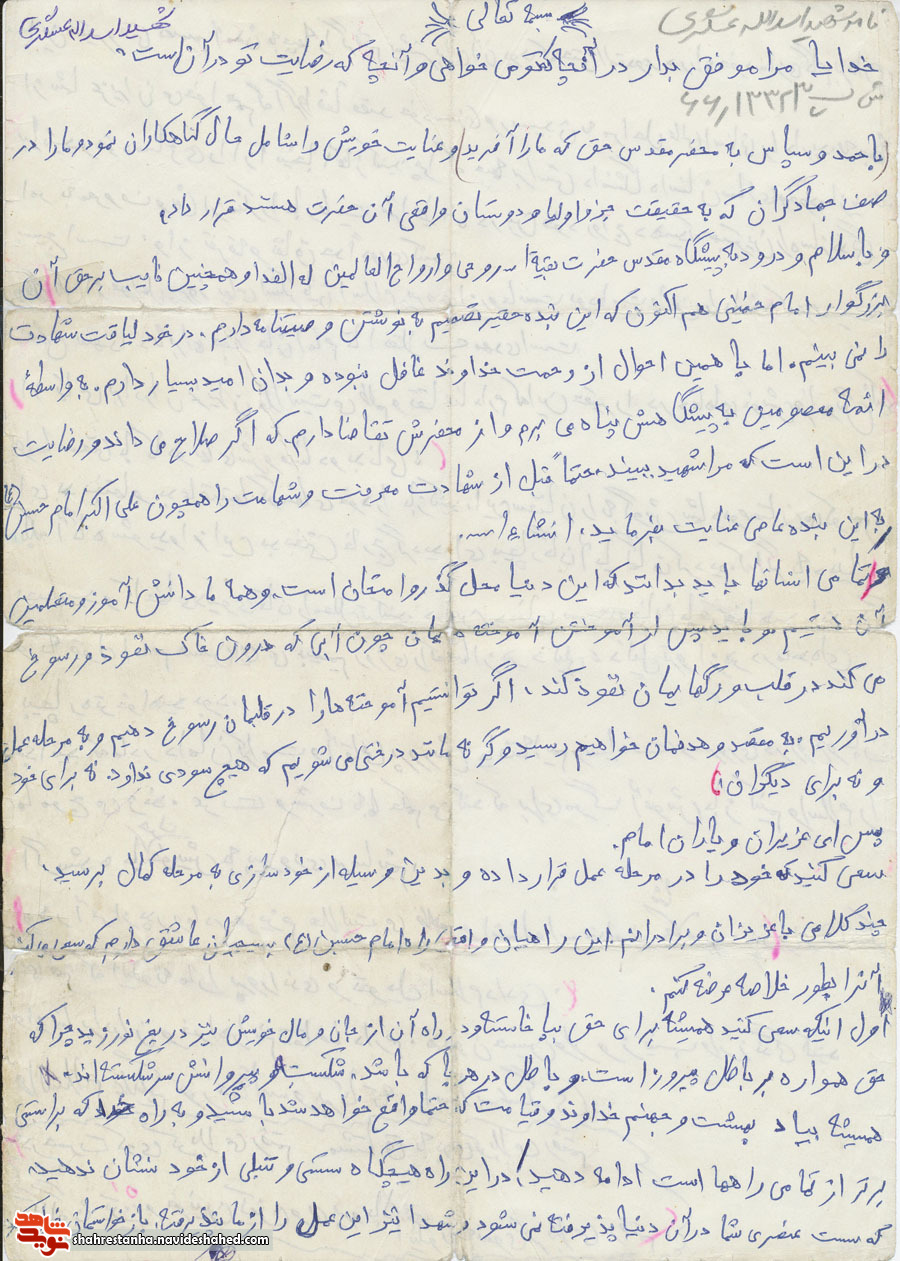 نامه شهید اسدالله عسکری
بسمه تعالی
شهید اسداله عسکری
خدایا مرا موفق بدار در آنچه که تو می خواهی و آنچه که رضایت تو در آن است.
(با حمد و سپاس به محضر مقدس حق که ما را آفرید) و عنایت خویش را شامل حال گناهکاران نمود و ما را در
صف جهادگران که به حقیقت جزو اولیا و دوستان واقعی آن حضرت هستند قرار داد.
و با سلام و درود به پیشگاه مقدس حضرت بقیة ا... روحی و ارواح العالمین له الفدا و همچنین نایب بر حق آن
بزرگوار امام خمینی هم اکنون که این بنده حقیر تصمیم به نوشتن وصیتنامه دارم. در خود لیاقت شهادت
را نمی بینم. اما با همین احوال از رحمت خداوند غافل نبوده و بدان امید بسیار دارم. به واسطهٔ
ائمه معصومین به پیشگاهش پناه می برم و از محضرش تقاضا دارم که اگر صلاح می داند و رضایت
در این است که مرا شهید ببیند حتماً قبل از شهادت معرفت و شهامت را همچون علی اکبر امام حسین (ع)
به این بنده عاصی عنایت بفرماید. انشاءا...
تمامی انسانها باید بدانند که این دنیا محل گذر و امتحان است. و همه ما دانش آموز و متعلمین
آن هستیم و باید پس از آموختن آموخته همان چون آبی که درون خاک نفوذ و رسوخ
می کند در قلب و رگهایمان نفوذ کند. اگر توانستیم آموخته ها را در قلبمان رسوخ دهیم و به مرحله عمل
درآوریم. به مقصد و هدفمان خواهیم رسید و گر نه مانند درختی می شویم که هیچ سودی ندارد. نه برای خود
و نه برای دیگران.
پس ای عزیزان و یاران امام.
سعی کنید که خود را در مرحله عمل قرار داده و بدین وسیله از خودسازی به مرحله کمال برسید.
چند کلامی با عزیزان و برادرانم این راهیان واقعی راه امام حسین (ع) بسیجیان عاشق دارم که
آنرا بطور خلاصه عرضه کنم.
اول اینکه سعی کنید همیشه برای حق بپا خاسته و در راه آن از جان و مال خویش نیز دریغ نورزید چرا که
حق همواره بر باطل پیروز است. و باطل در هر جا که باشد. شکست و پیروانش سرشکسته اند.
همیشه بیاد بهشت و جهنم خداوند و قیامت که حتما واقع خواهد شد باشید و به راه خدا که براستی
برتر از تمامی راهها است ادامه دهید. در این راه هیچگاه سستی و تنبلی از خود نشان ندهید.
که سست عنصری شما در آن دنیا پذیرفته نمی شود و شهدا نیز این عمل را از ما نپذیرفته.
نوید شاهد
shahrestanha.navideshahed.com